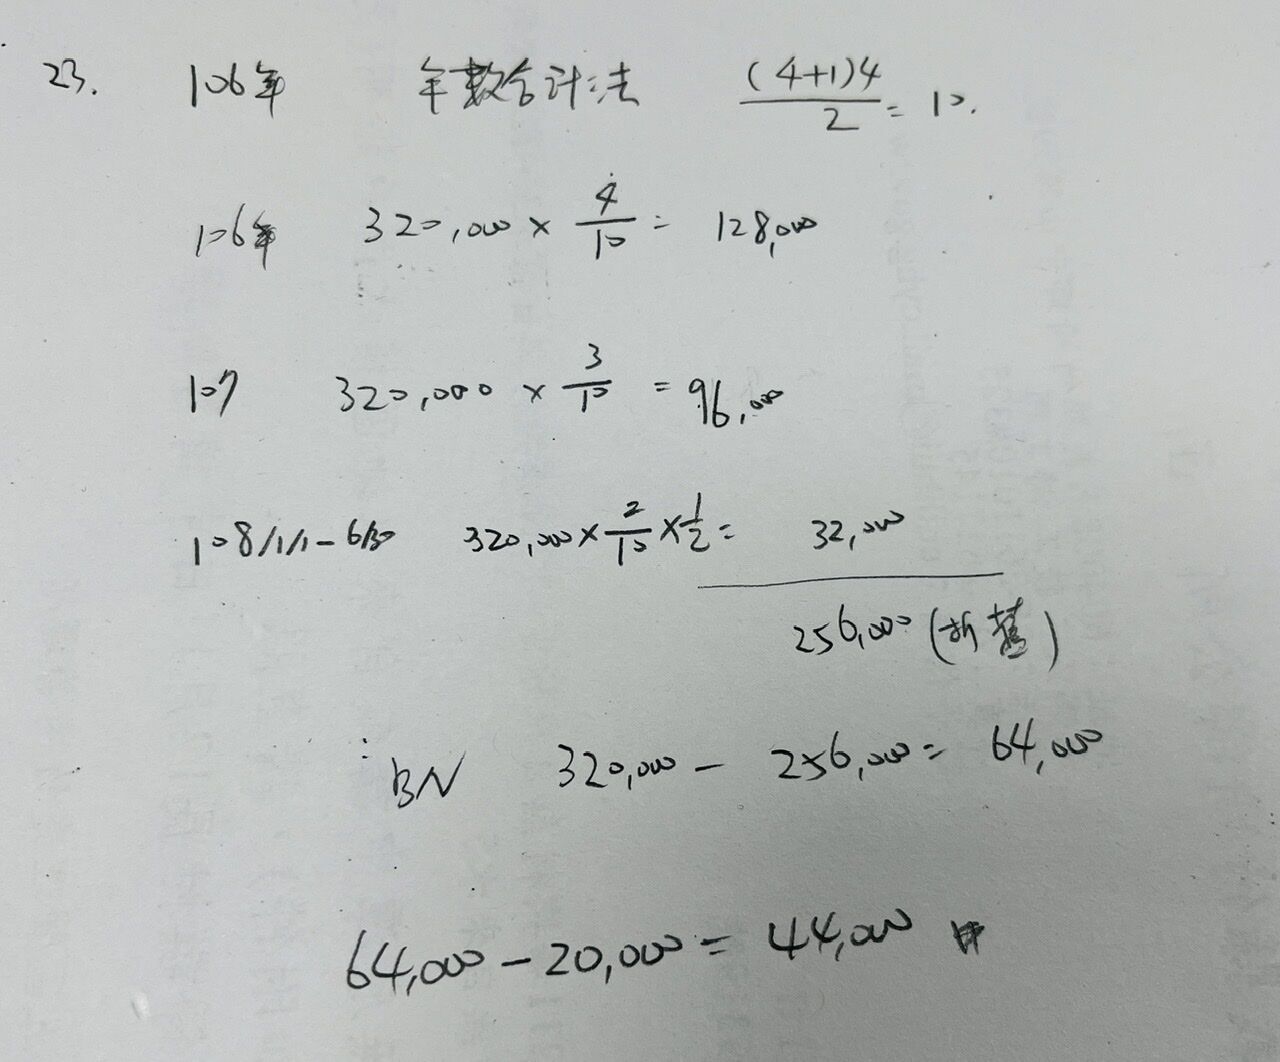 23. 106年 年數合計法 (4+1)4/2 = 10.
106年 320,000 × 4/10 = 128,000
107 320,000 × 3/10 = 96,000
108/1/1-6/30 320,000 × 2/10 × 1/2 = 32,000
256,000 (折舊)
BV 320,000 - 256,000 = 64,000
64,000 - 20,000 = 44,000 #